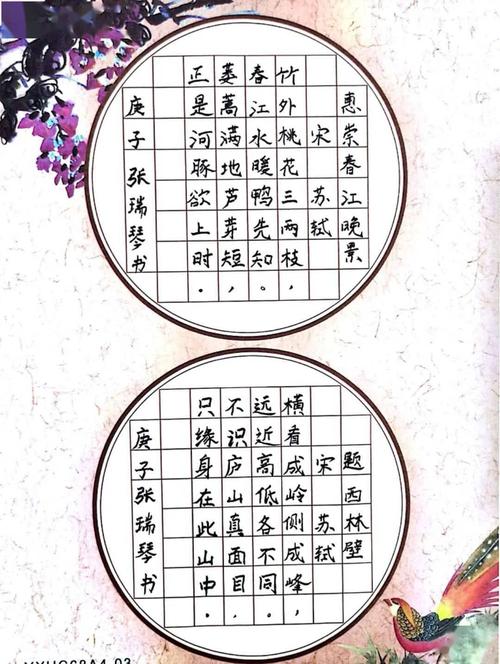 惠崇春江晚景
宋 苏轼
竹外桃花三两枝，
春江水暖鸭先知。
蒌蒿满地芦芽短，
正是河豚欲上时。
庚子 张瑞琴书
题西林壁
宋 苏轼
横看成岭侧成峰，
远近高低各不同。
不识庐山真面目，
只缘身在此山中。
庚子张瑞琴书